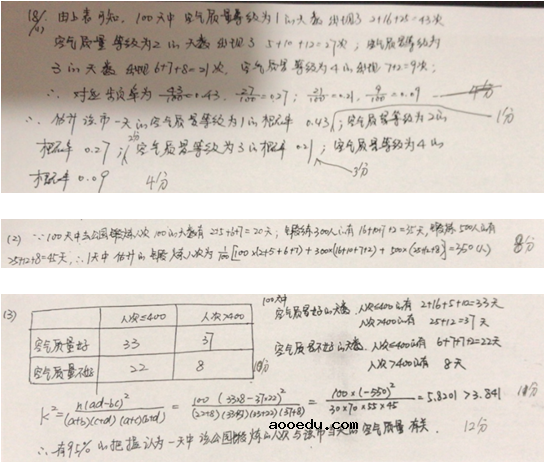 18/(1) 由上表可知,100天中空气质量等级为1的天数出现了2+16+25=43次
空气质量等级为2的天数出现了5+10+12=27次;空气质量等级为
3的天数出现6+7+8=21次,空气质量等级为4的出现7+2=9次;
∴对应频率为 43/100=0.43, 27/100=0.27; 21/100=0.21, 9/100=0.09 4分
∴估计该市一天的空气质量等级为1的概率0.43;空气质量等级为2的 1分
概率0.27;2分 空气质量等级为3的概率0.21;空气质量等级为4的
概率0.09 4分 3分
(2) ∵100天中去公园锻炼人次100的天数有 2+5+6+7=20天;锻炼300人的有16+10+7+2=35天,锻炼500人的有
25+12+8=45天,∴1天中估计的锻炼人次为 1/100[100×(2+5+6+7)+300×(16+10+7+2)+500×(25+12+8)]=350(人) 8分
(3) 人次≤400 人次>400
空气质量好 33 37
空气质量不好 22 8 10分
100天中
空气质量好的天数,人次≤400的有 2+16+5+10=33天
人次>400的有 25+12=37天
空气质量不好的天数,人次≤400的有 6+7+7+2=22天
人次>400的有 8天
K²=n(ad-bc)²/(a+b)(c+d)(a+c)(b+d) = 100(33×8-37×22)²/(22+8)(33+37)(33+22)(37+8) = 100×(-550)²/30×70×55×45 = 5.8201>3.841 11分
∴有95%的把握认为一天中该公园锻炼的人次与该市当天的空气质量有关. 12分
aooedu.com